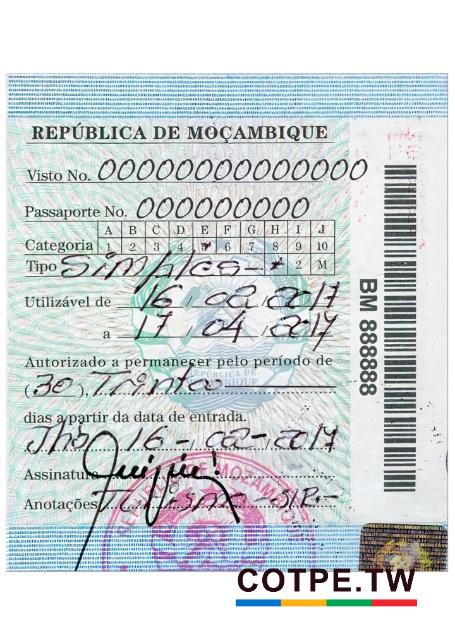 REPÚBLICA DE MOÇAMBIQUE
Visto No. 00000000000000
Passaporte No. 000000000
A B C D E F G H I J
Categoria 1 2 3 4 5 6 7 8 9 10
Tipo Simples 2 M
Utilizável de 16 / 02 / 2017
a 17 / 04 / 2017
Autorizado a permanecer pelo período de
(30), Trinta
dias a partir da data de entrada.
16 - 02 - 2017
Assinatura
Anotações Turismo
BM 888888
COTPE.TW